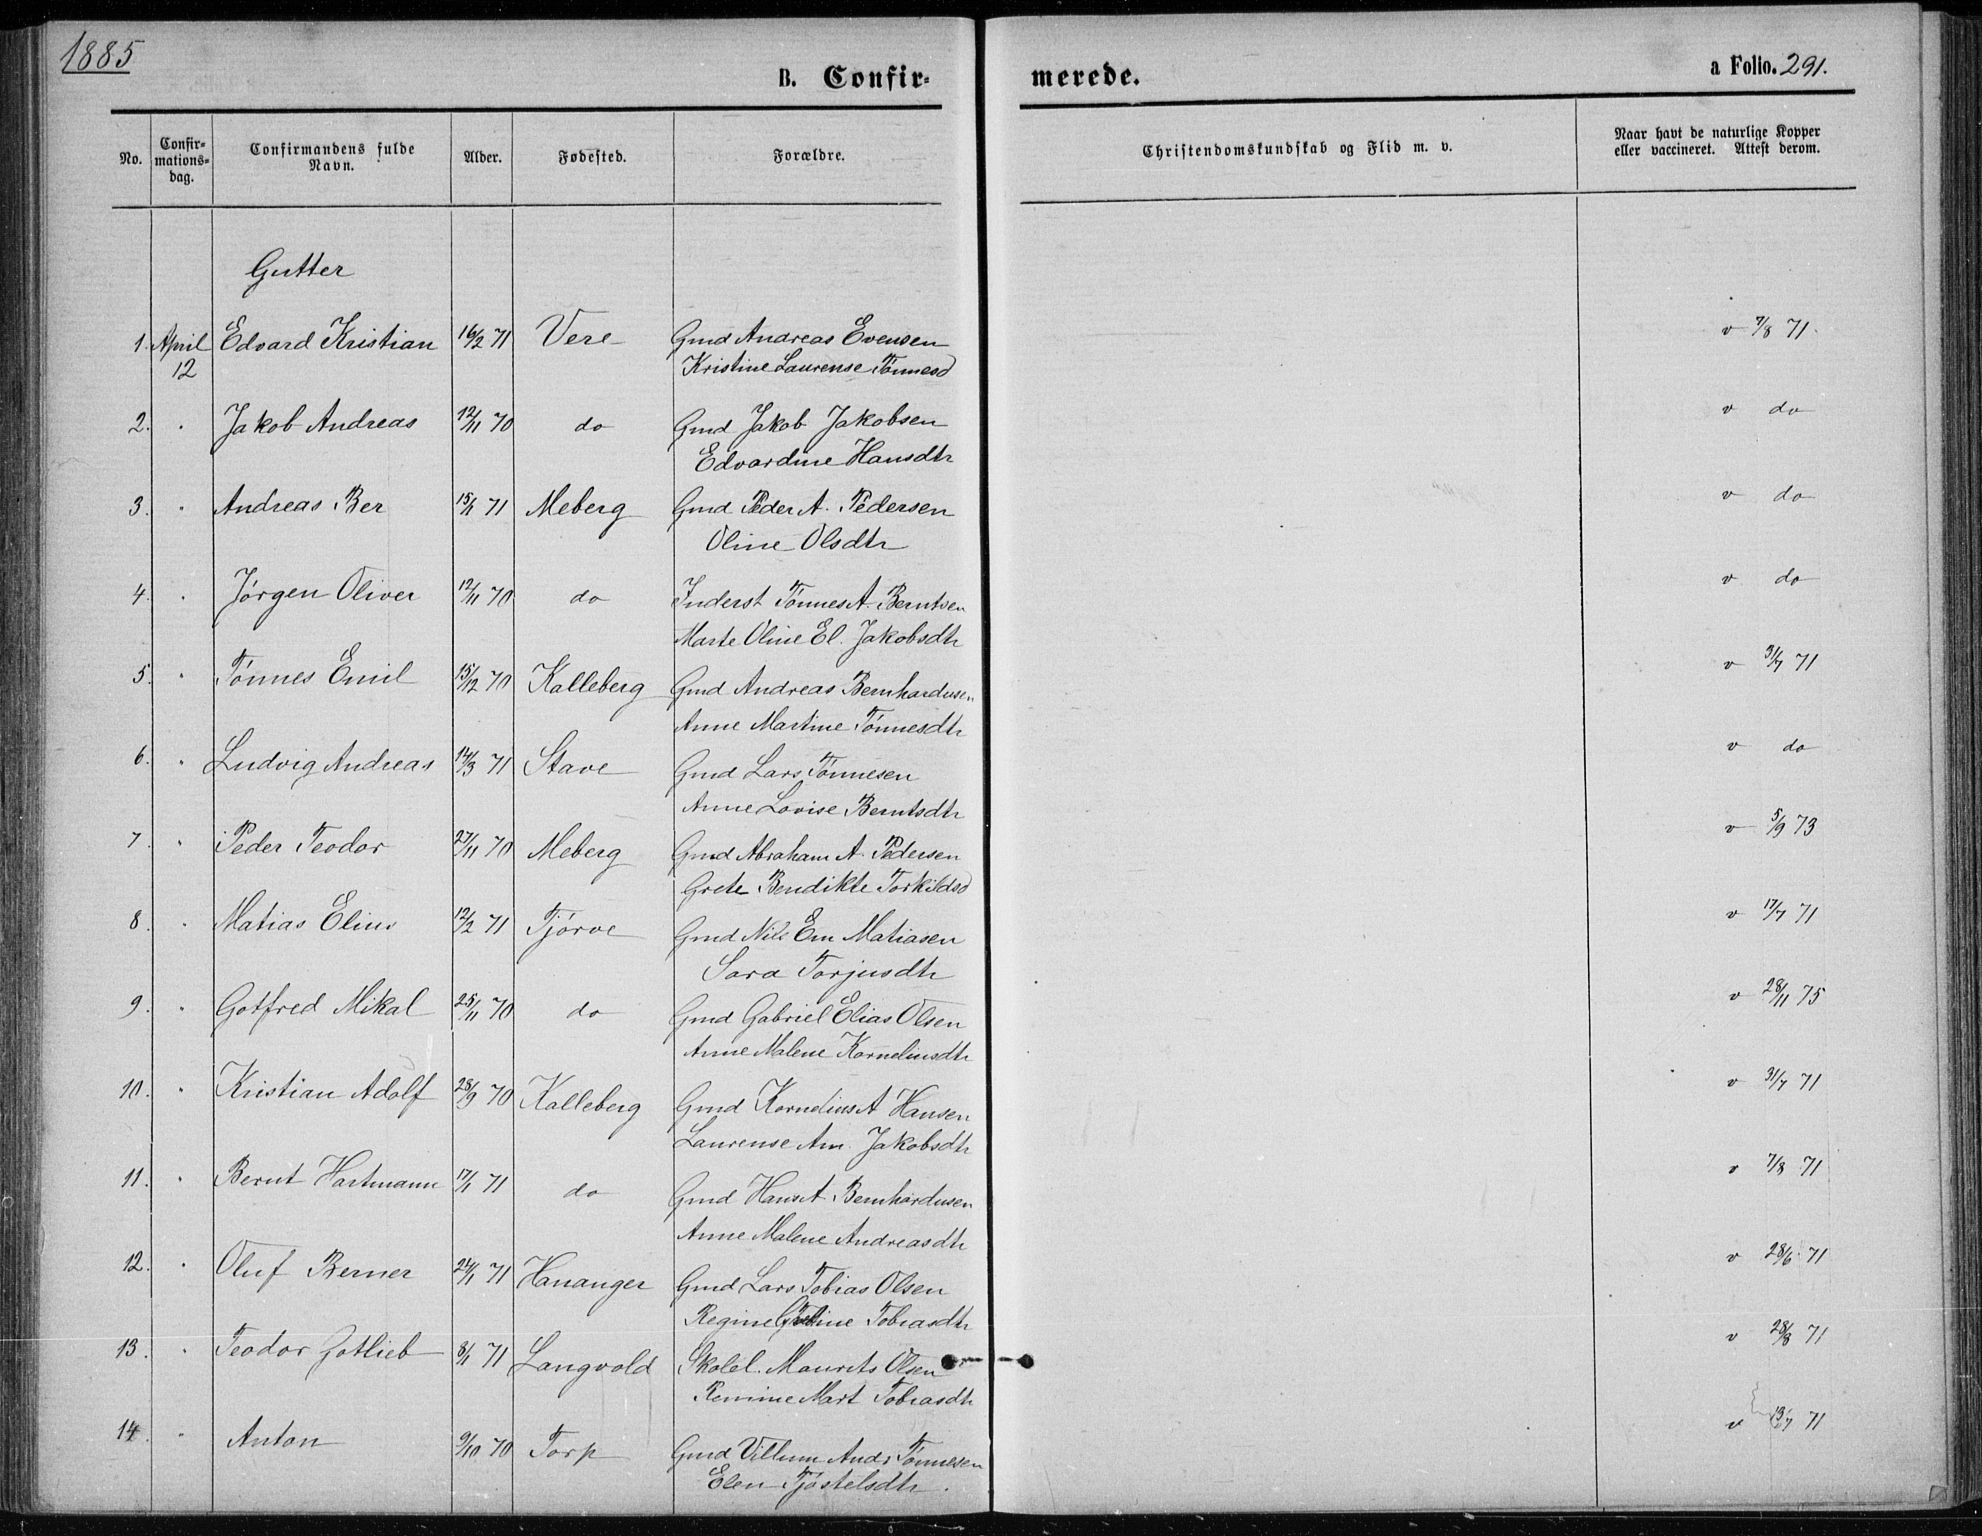 1885
B. Confir-
merede.
a Folio. 291.
No.
Confir-
mations-
dag.
Confirmandens fulde
Navn.
Alder.
Fødested.
Forældre.
Christendomskundskab og Flid m. v.
Naar havt de naturlige Kopper
eller vaccineret. Attest derom.
Gutter
1. April Edvard Kristian 16/2 71 Vere Gmd Andreas Evensen v 7/8 71.
12 Kristine Laurense Tønnesd
2. " Jakob Andreas 12/11 70 do Gmd Jakob Jakobsen v do
Edvardine Hansdtr
3. " Andreas Ber 15/1 71 Meberg Gmd Peder A. Pedersen v do
Oline Olsdtr
4. " Jørgen Oliver 12/11 70 do Inderst Tønnes A. Berntsen v do
Marte Oline El. Jakobsdtr
5. " Tønnes Emil 15/12 70 Kalleberg Gmd Andreas Bernhardusen v 31/7 71
Anne Martine Tønnesdtr
6. " Ludvig Andreas 14/3 71 Stave Gmd Lars Tønnesen v do
Anne Lovise Berntsdtr
7. " Peder Teodor 27/11 70 Meberg Gmd Abraham A. Pedersen v 5/9 73
Grete Bendikte Torkildsd
8. " Matias Elius 12/2 71 Tjørve Gmd Nils Em Matiasen v 17/7 71
Sara Torjusdtr
9. " Gotfred Mikal 25/11 70 do Gmd Gabriel Elias Olsen v 28/11 75
Anne Malene Korneliusdtr
10. " Kristian Adolf 28/9 70 Kalleberg Gmd Kornelius A Hansen v 31/7 71
Laurense Am. Jakobsdtr
11. " Bernt Hartmann 17/1 71 do Gmd Hans A. Bernhardusen v 7/8 71
Anne Malene Andreasdtr
12. " Oluf Berner 24/1 71 Hananger Gmd Lars Tobias Olsen v 28/6 71
Regine Tobiasdtr
13. " Teodor Gotlieb 8/1 71 Langvold Skolel. Maurits Olsen v 28/8 71
Remine Mart Tobiasdtr
14. " Anton 9/10 70 Torp Gmd Villum Andr Tønnesen v 13/7 71
Elen Tjøstelsdtr.